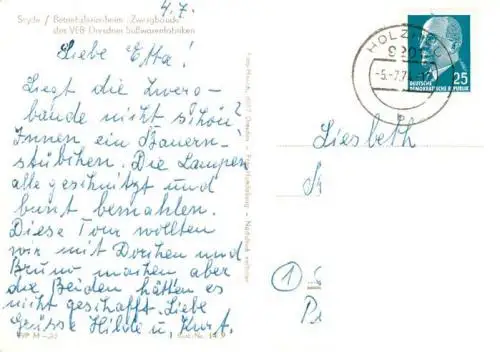 4.7.
Sayda / Betriebsferienheim „Zwergbaude"
des VEB Dresdner Süßwarenfabriken
Liebe Etta!
Liegt die Zwerg-
baude nicht schön?
Innen ein Bauern-
stübchen. Die Lampen
alle geschnitzt und
bunt bemahlen.
Diese Tour wollten
wir mit Dorchen und
Bruno machen aber
die Beiden hätten es
nicht geschafft. Liebe
Grüsse Hilde u. Kurt.
HOLZHAU
-5.-7.7
25
DEUTSCHE
DEMOKRATISCHE REPUBLIK
Liesbeth
1